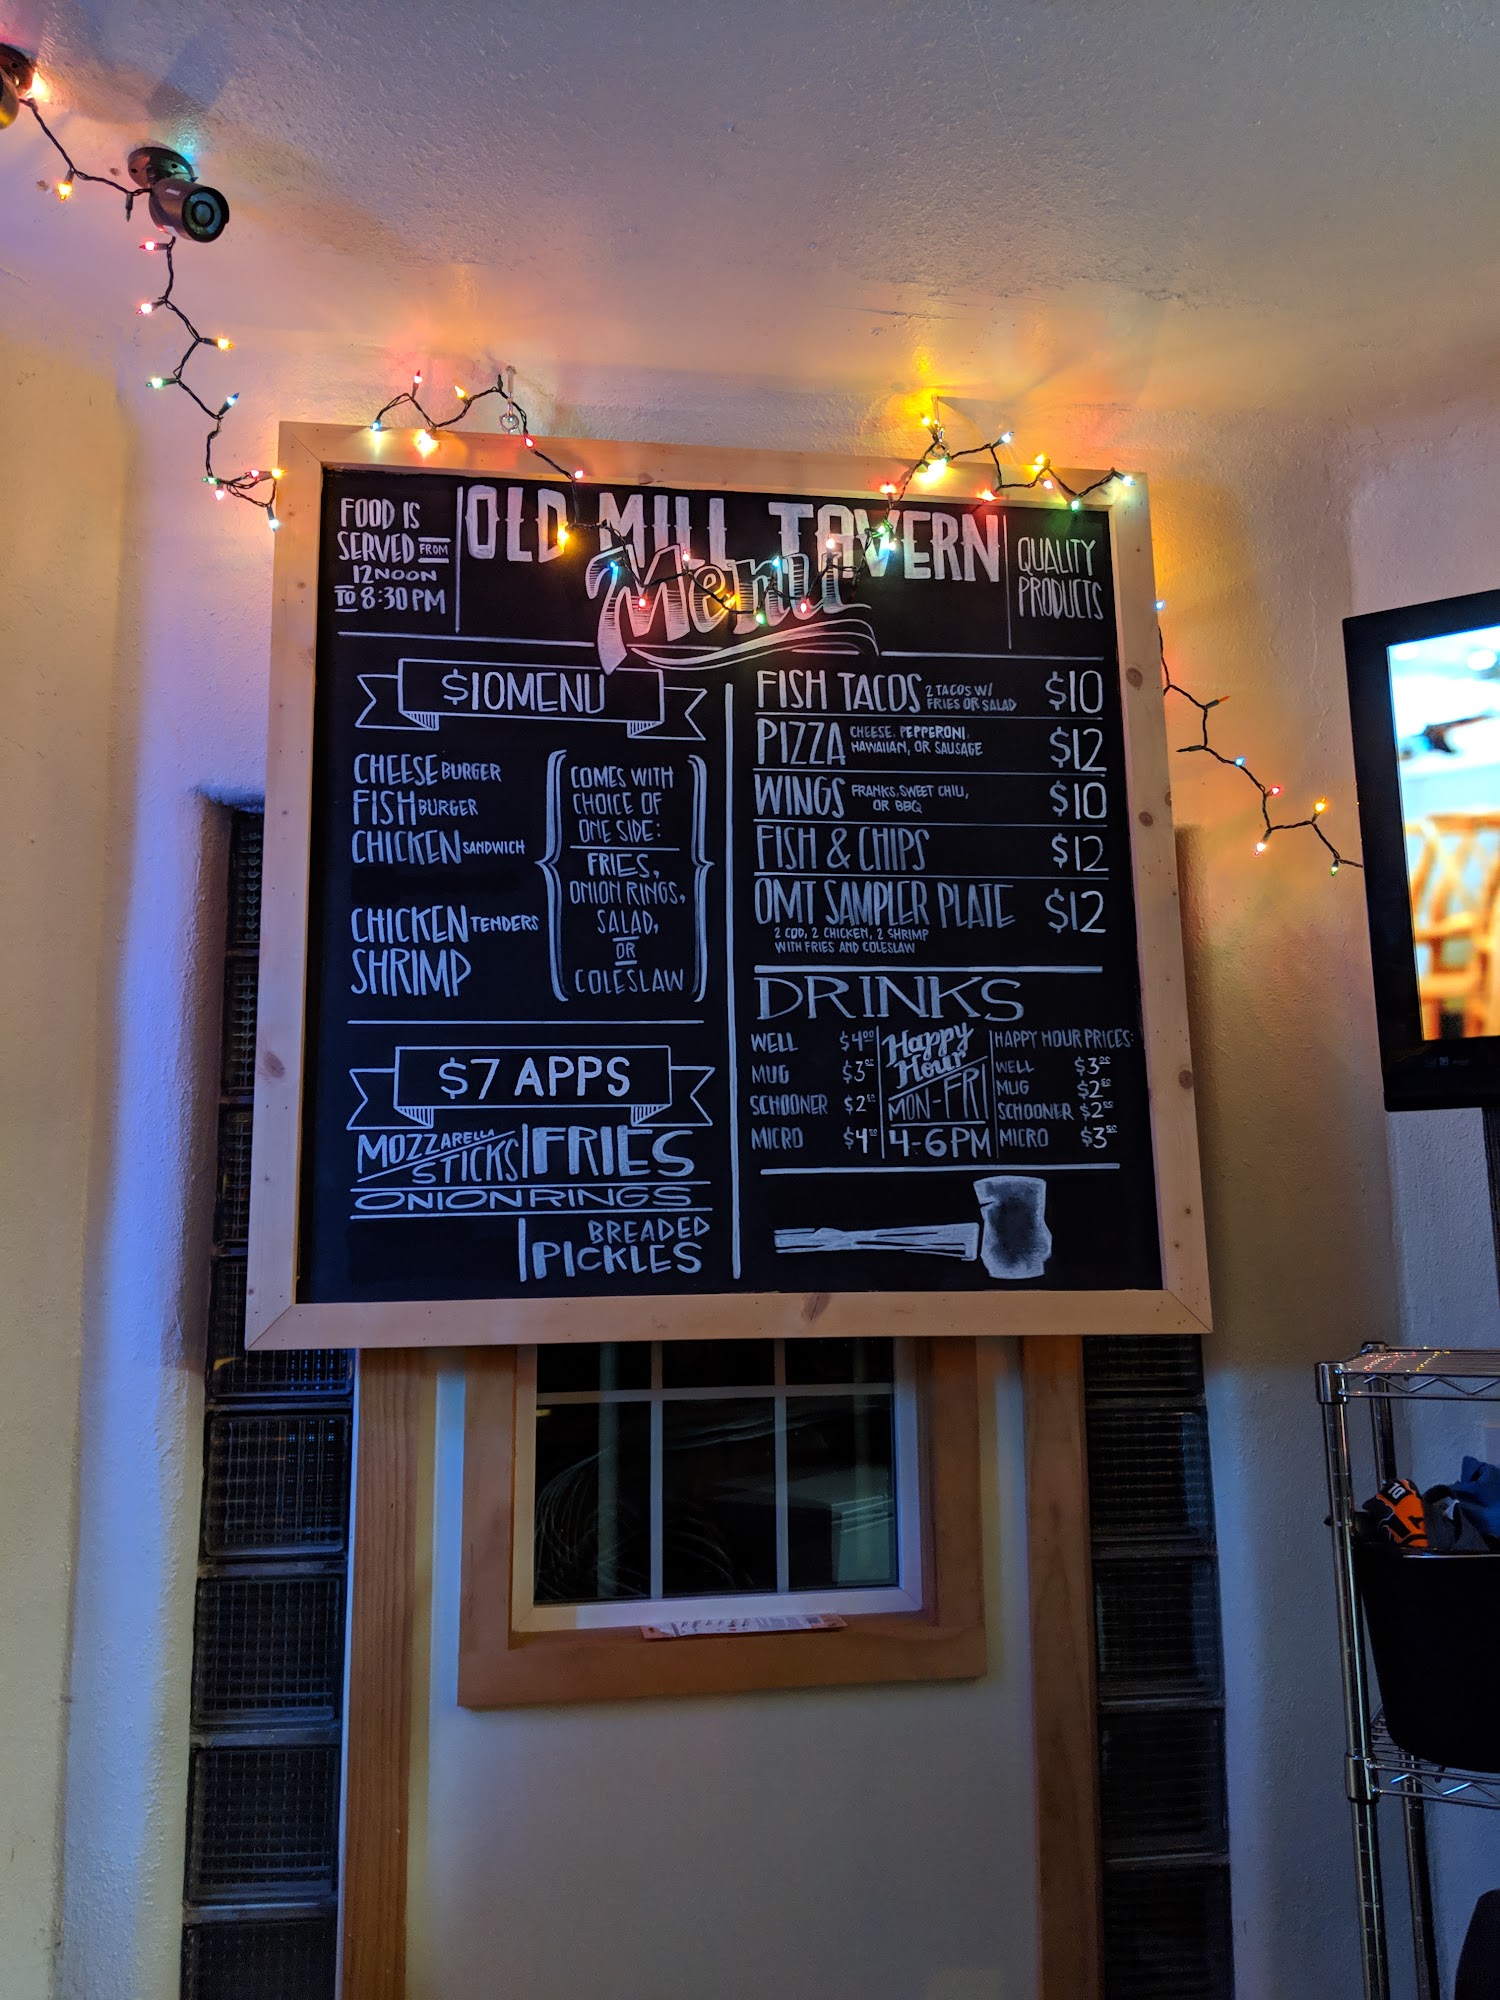 FOOD IS
SERVED FROM
12 NOON
TO 8:30 PM
OLD MILL TAVERN
Menu
QUALITY
PRODUCTS
$10 MENU
CHEESE BURGER
FISH BURGER
CHICKEN SANDWICH
CHICKEN TENDERS
SHRIMP
COMES WITH
CHOICE OF
ONE SIDE:
FRIES,
ONION RINGS,
SALAD,
OR
COLESLAW
$7 APPS
MOZZARELLA
STICKS
FRIES
ONION RINGS
BREADED
PICKLES
FISH TACOS 2 TACOS W/ FRIES OR SALAD $10
PIZZA CHEESE, PEPPERONI, HAWAIIAN, OR SAUSAGE $12
WINGS FRANKS, SWEET CHILI, OR BBQ $10
FISH & CHIPS $12
OMT SAMPLER PLATE $12
2 COD, 2 CHICKEN, 2 SHRIMP
WITH FRIES AND COLESLAW
DRINKS
WELL $4.00
MUG $3
SCHOONER $2
MICRO $4
Happy
Hour
MON-FRI
4-6PM
HAPPY HOUR PRICES:
WELL $3
MUG $2
SCHOONER $2
MICRO $3